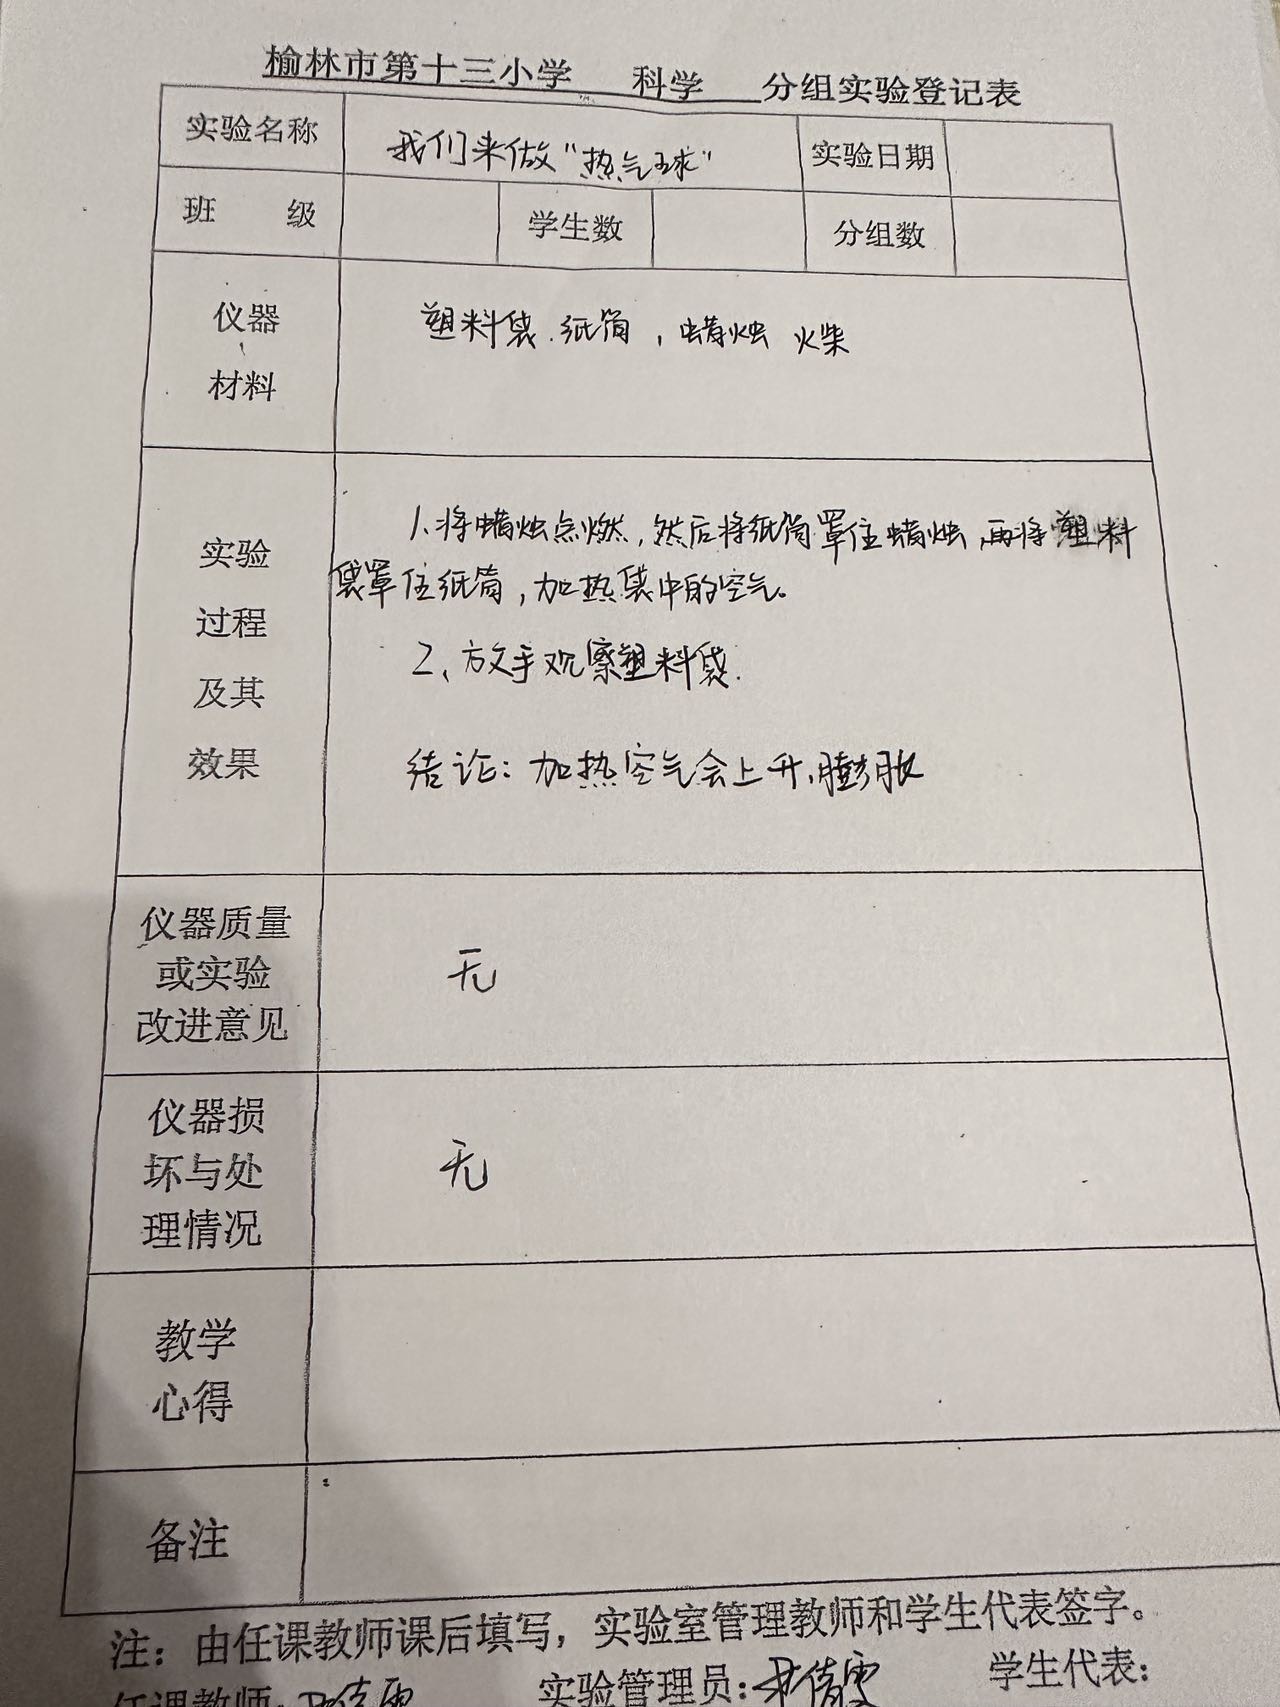 榆林市第十三小学 科学 分组实验登记表
实验名称 我们来做"热气球" 实验日期
班 级 学生数 分组数
仪器
材料
塑料袋.纸筒,蜡烛 火柴
实验
过程
及其
效果
1.将蜡烛点燃,然后将纸筒罩住蜡烛,再将塑料
袋罩住纸筒,加热袋中的空气。
2、放手观察塑料袋.
结论:加热空气会上升,膨胀
仪器质量
或实验
改进意见
无
仪器损
坏与处
理情况
无
教学
心得
备注
注:由任课教师课后填写,实验室管理教师和学生代表签字。
任课教师: 实验管理员: 学生代表: